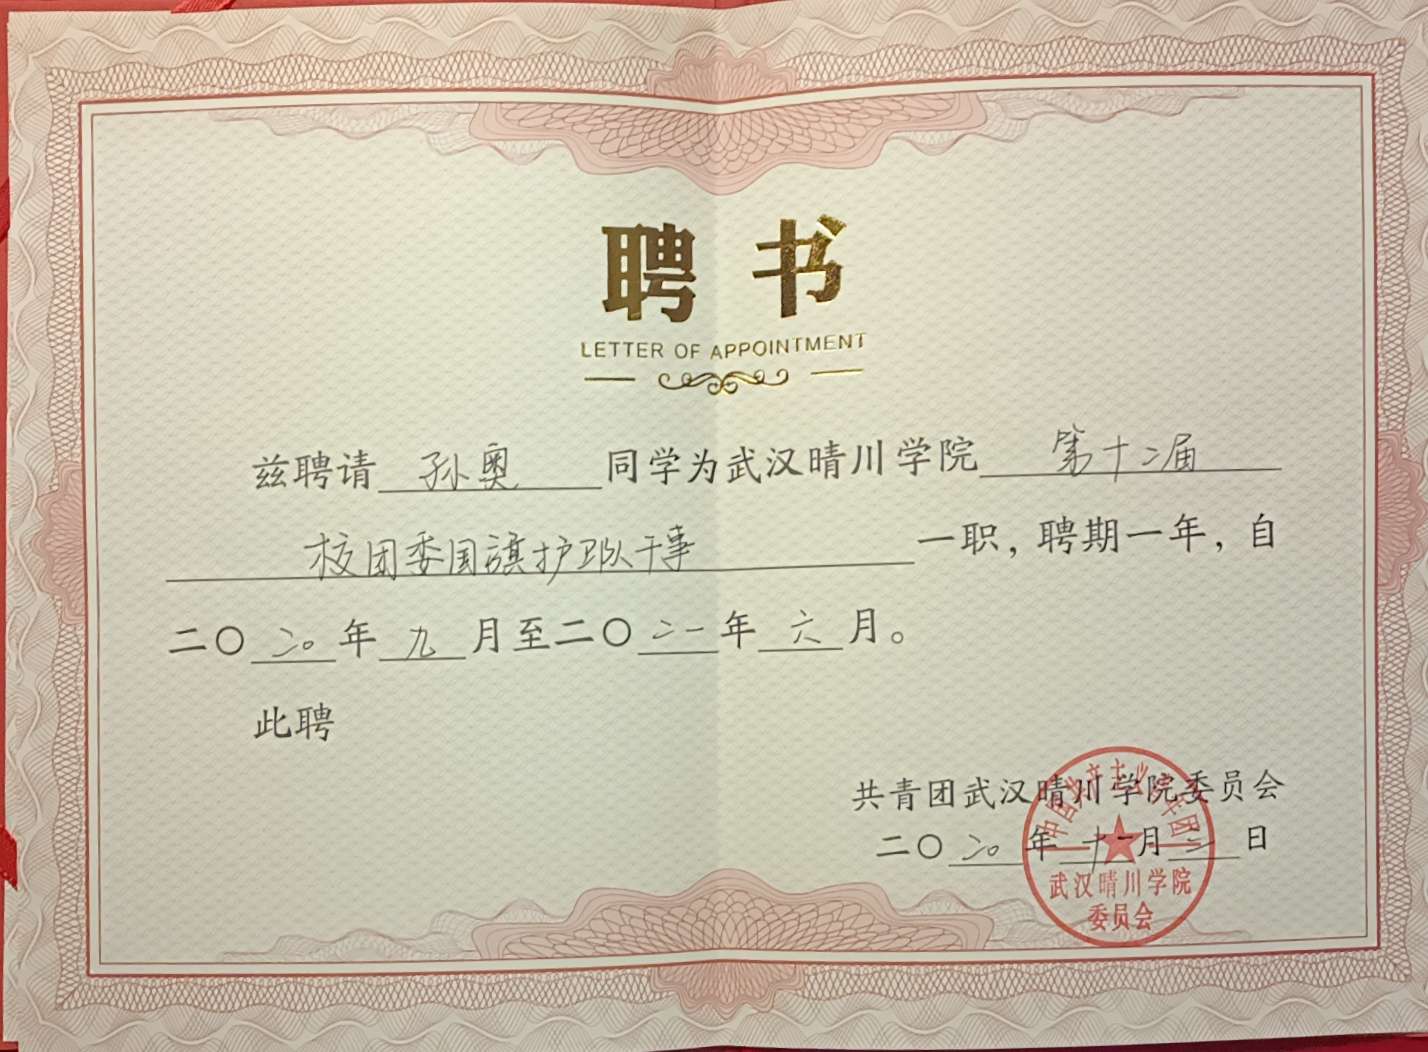 聘书
LETTER OF APPOINTMENT
兹聘请 孙奥 同学为武汉晴川学院 第十二届
校团委国旗护卫队干事 一职，聘期一年，自
二〇二〇年九月至二〇二一年六月。
此聘
共青团武汉晴川学院委员会
二〇二〇年十一月二日
中国共产主义青年团
武汉晴川学院
委员会